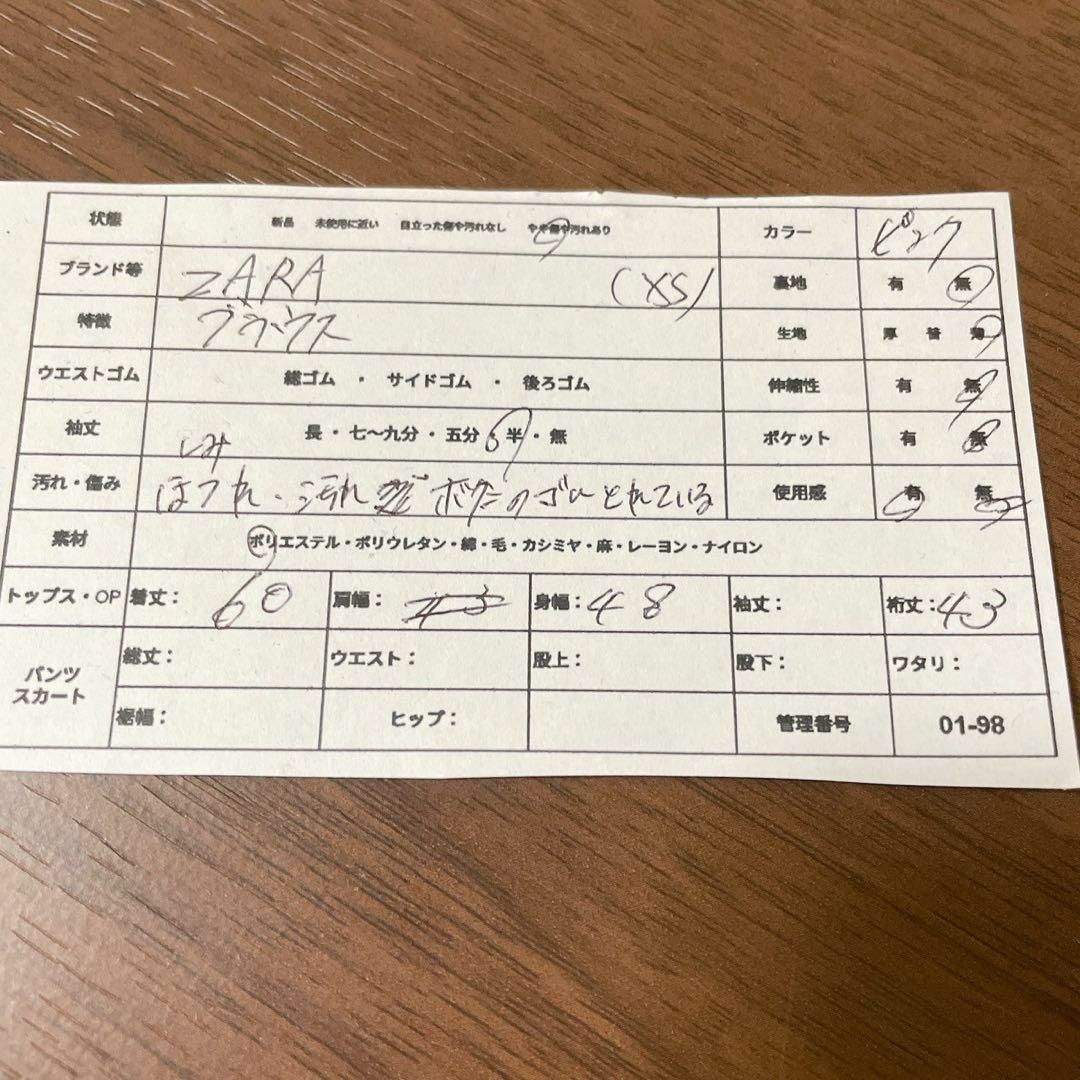 状態 新品 未使用に近い 目立った傷や汚れなし やや傷や汚れあり カラー ピンク
ブランド等 ZARA (XS) 裏地 有 無
特徴 ブラウス 生地 厚 普 薄
ウエストゴム 総ゴム ・ サイドゴム ・ 後ろゴム 伸縮性 有 無
袖丈 長・七〜九分・五分・半・無 ポケット 有 無
しみ
汚れ・傷み ほつれ、汚れ ボタンのゴムとれている 使用感 有 無
素材 ポリエステル・ポリウレタン・綿・毛・カシミヤ・麻・レーヨン・ナイロン
トップス・OP 着丈: 60 肩幅: 身幅: 48 袖丈: 裄丈: 43
パンツ スカート 総丈: ウエスト: 股上: 股下: ワタリ:
裾幅: ヒップ: 管理番号 01-98